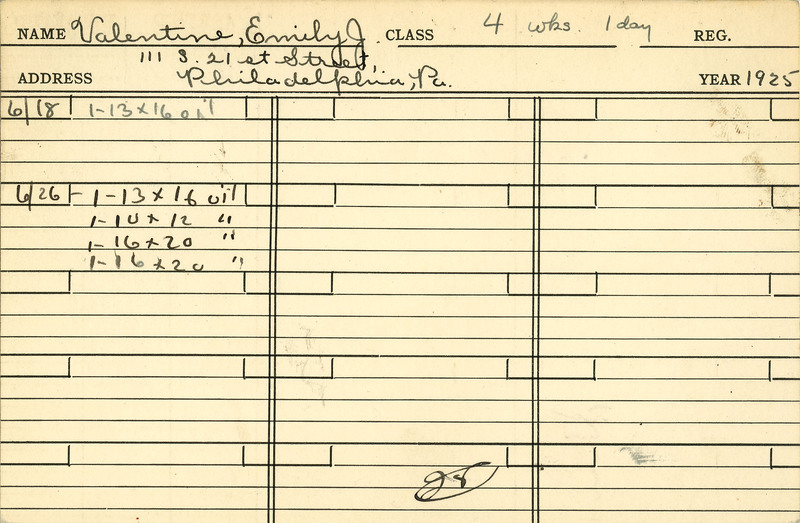 NAME Valentine, Emily J. CLASS 4 wks. 1 day REG.
111 S. 21 st Street,
ADDRESS Philadelphia, Pa. YEAR 1925
6/18 1-13x16 oil
6/26 - 1-13x16 oil
1-10x12 "
1-16x20 "
1-16x20 "